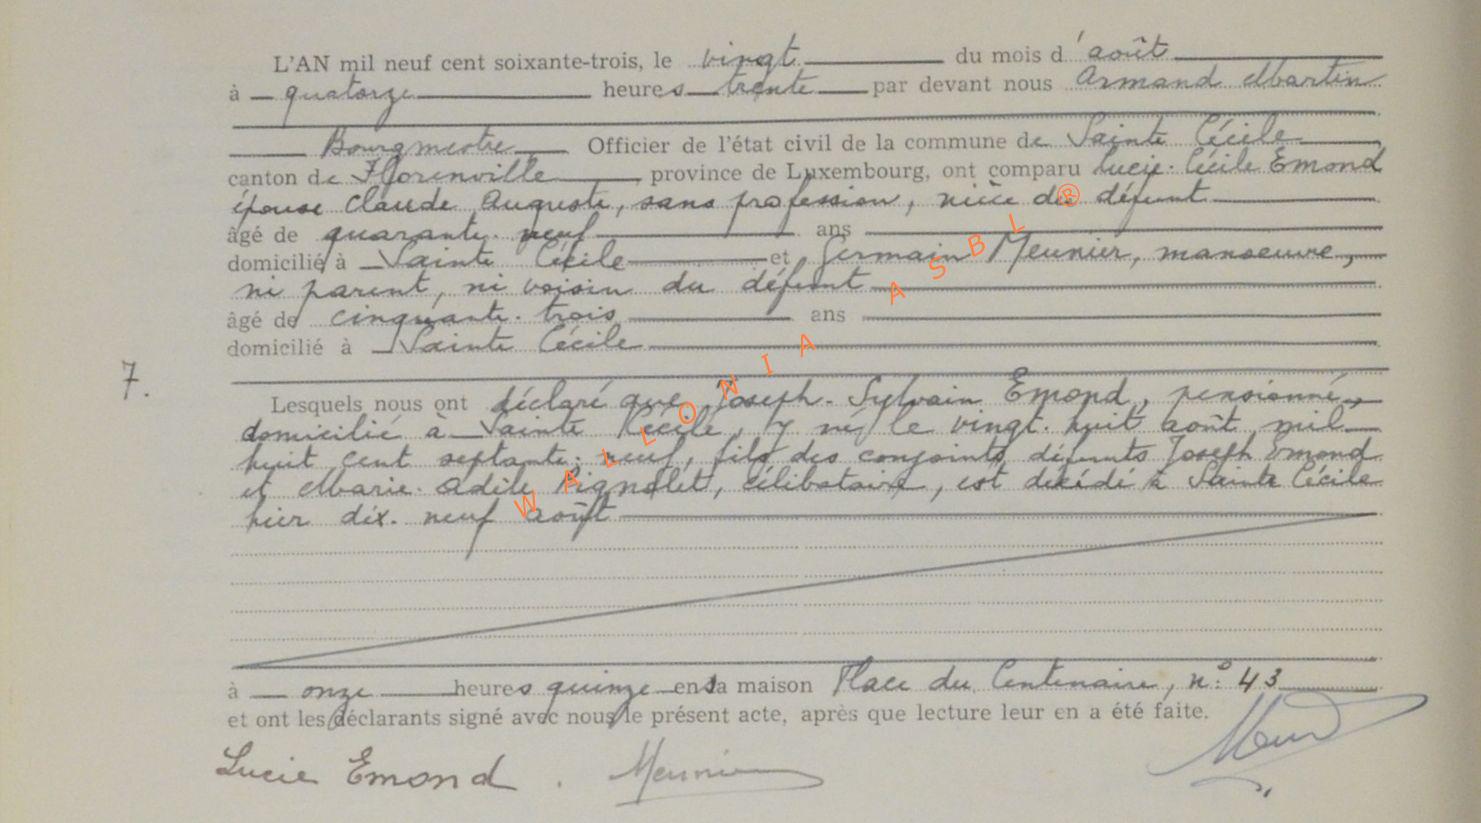 L'AN mil neuf cent soixante-trois, le vingt du mois d'août
à quatorze heures trente par devant nous Armand Martin
Bourgmestre Officier de l'état civil de la commune de Sainte Cécile
canton de Florenville, province de Luxembourg, ont comparu Lucie-Cécile Emond
épouse Claude Auguste, sans profession, nièce du défunt
âgé de quarante-neuf ans
domicilié à Sainte Cécile et Germain Meunier, manoeuvre,
ni parent, ni voisin du défunt
âgé de cinquante-trois ans
domicilié à Sainte Cécile
7.
Lesquels nous ont déclaré que Joseph-Sylvain Emond, pensionné,
domicilié à Sainte Cécile, y né le vingt-huit août mil
huit cent septante-neuf, fils des conjoints défunts Joseph Emond
et Marie-Adèle Pignolet, célibataire, est décédé à Sainte Cécile
hier dix-neuf août
à onze heures quinze en sa maison Place du Centenaire, n° 43
et ont les déclarants signé avec nous le présent acte, après que lecture leur en a été faite.
Lucie Emond. Meunier
WALLONIA ASBL ®